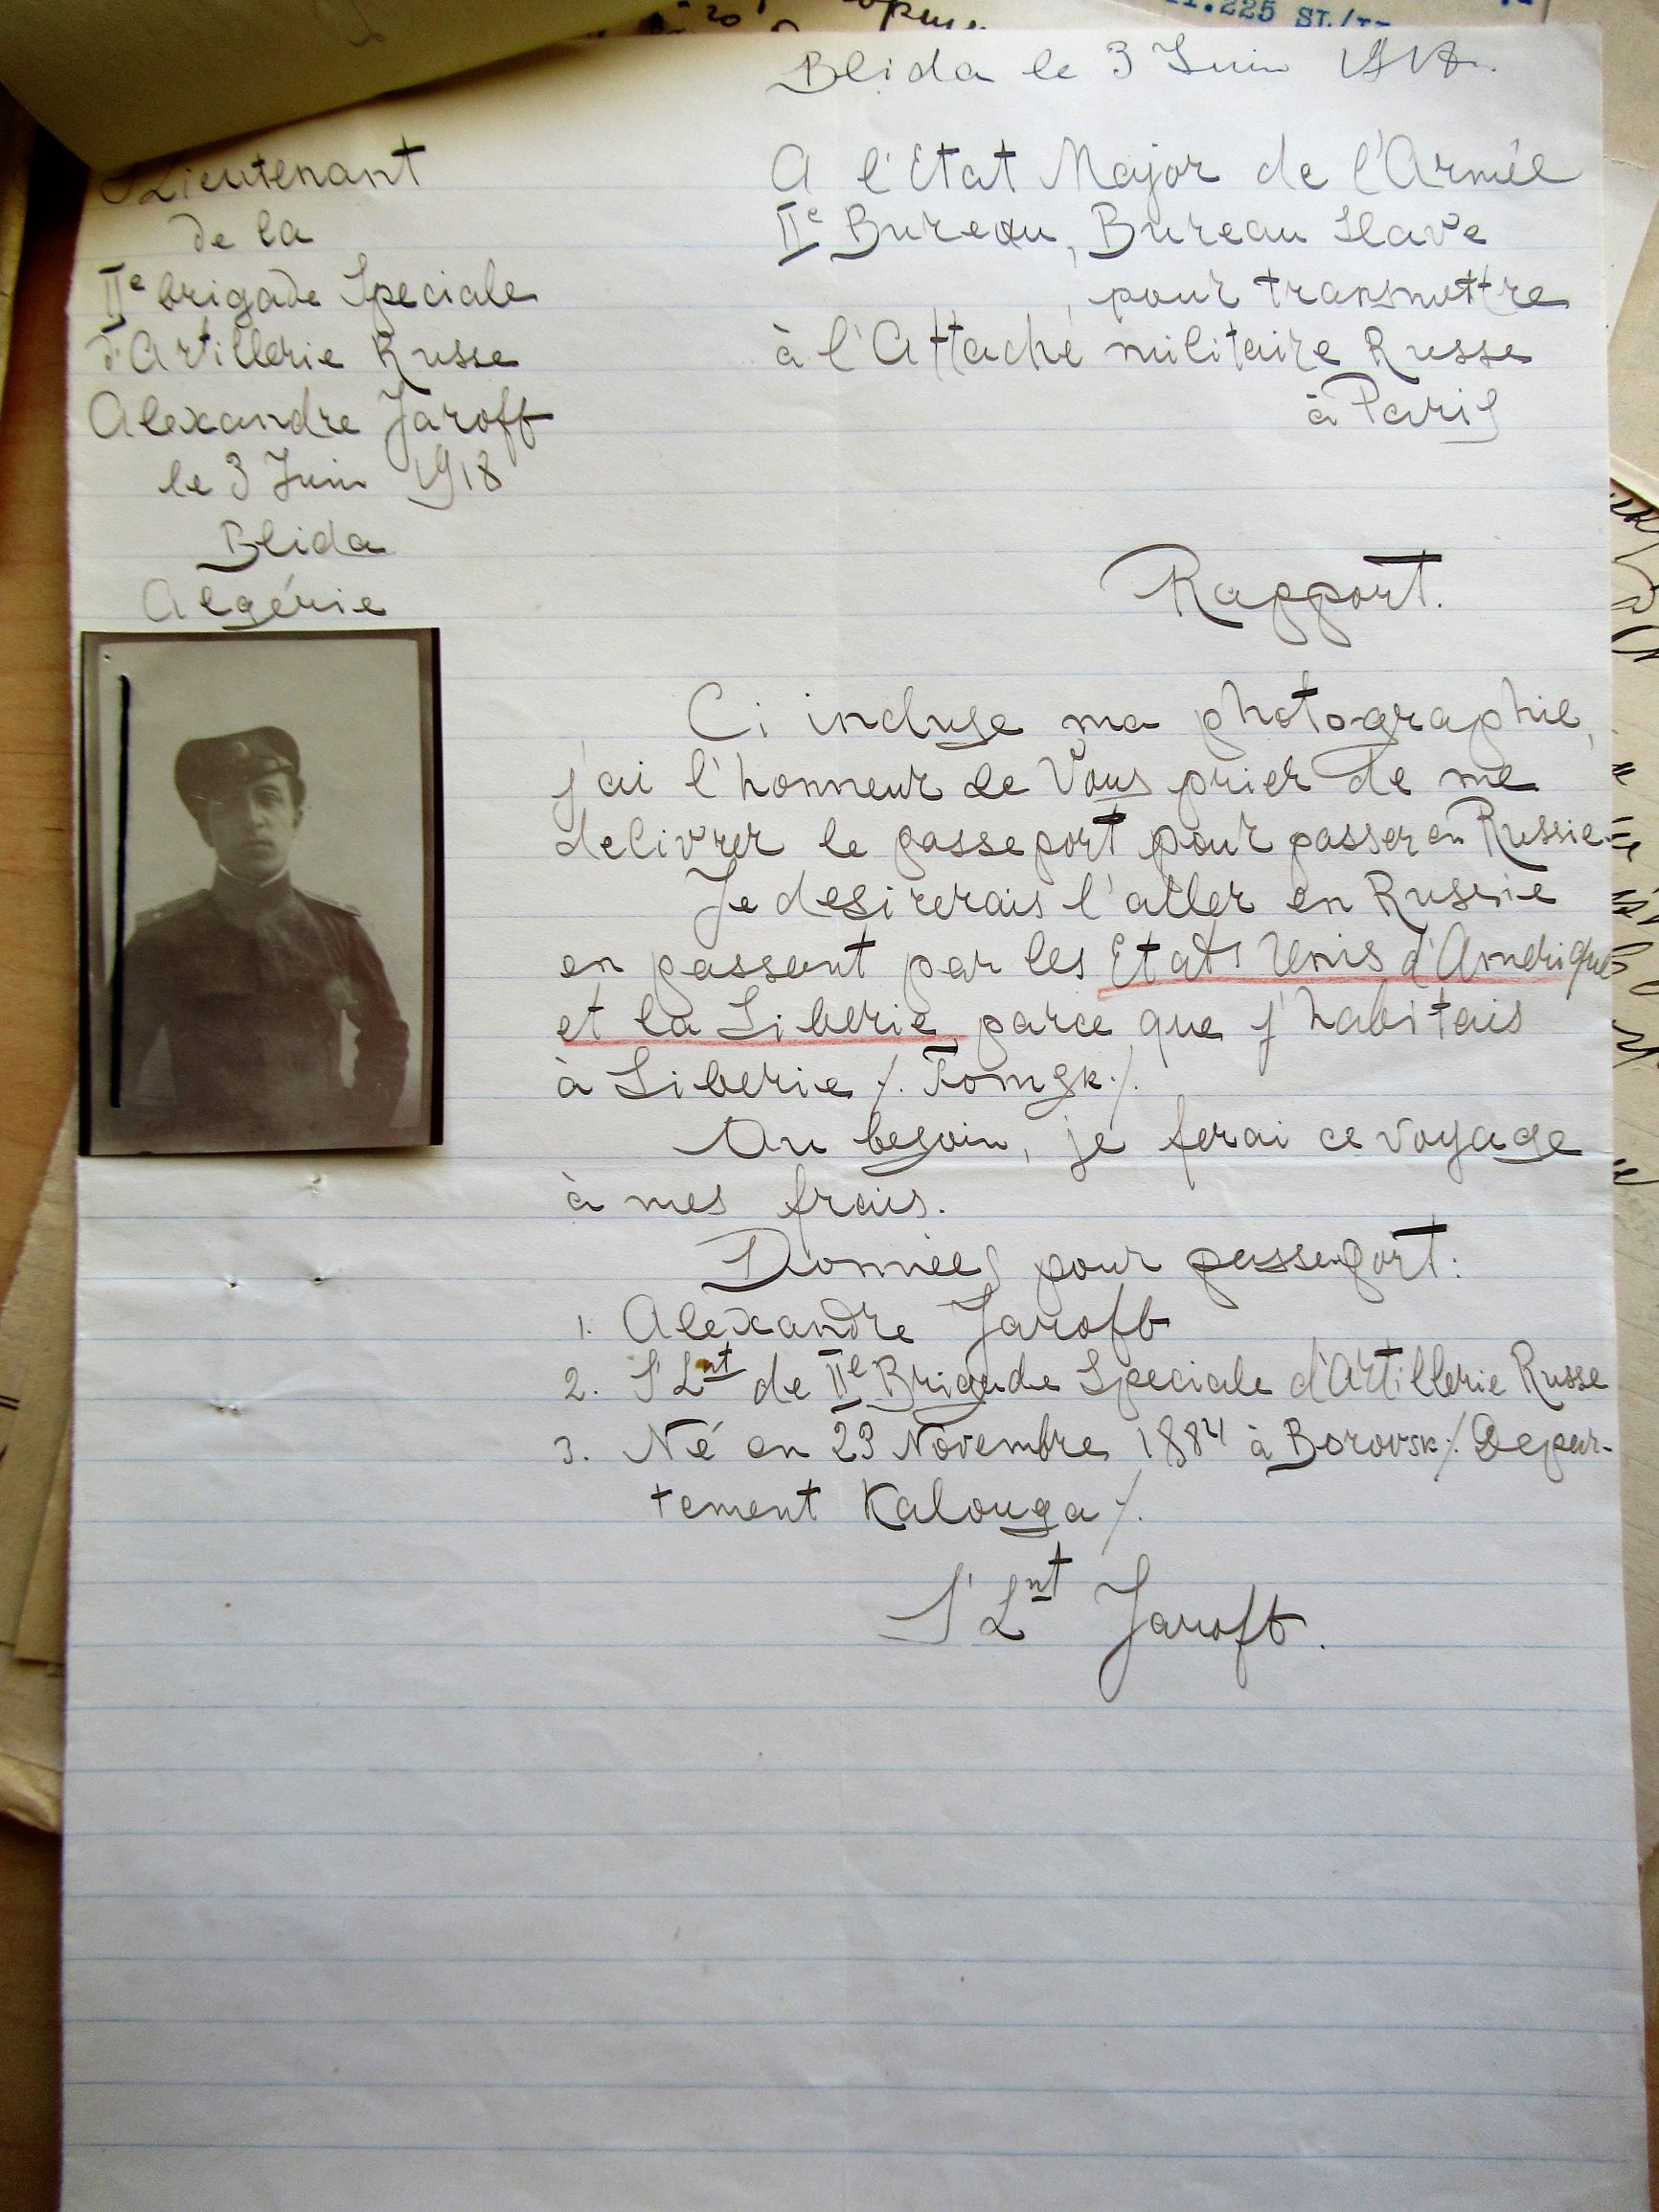 Blida le 3 Juin 1918.
S'Lieutenant
de la
IIe brigade Speciale
d'Artillerie Russe
Alexandre Jaroff
le 3 Juin 1918
Blida
Algérie
A l'Etat Major de l'Armée
IIe Bureau, Bureau Slave
pour transmettre
à l'Attaché militaire Russe
à Paris
Rapport.
Ci incluse ma photographie,
j'ai l'honneur de Vous prier de me
delivrer le passeport pour passer en Russie.
Je desirerais l'aller en Russie
en passant par les Etats Unis d'Amerique
et la Siberie, parce que j'habitais
à Siberie /. Tomsk./.
Au besoin, je ferai ce voyage
à mes frais.
Données pour passeport:
1. Alexandre Jaroff
2. S'Lnt de IIe Brigade Speciale d'Artillerie Russe
3. Né en 23 Novembre 1884 à Borovsk /. Depar-
tement Kalouga /.
S'Lnt Jaroff.
11.225 ST./